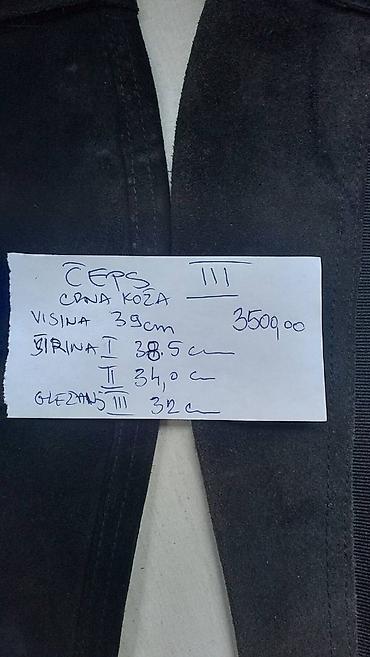 ČEPS III
CRNA KOŽA
VISINA 39cm 3500,00
ŠIRINA I 38.5 cm
II 34,0 cm
GLEŽANJ III 32 cm